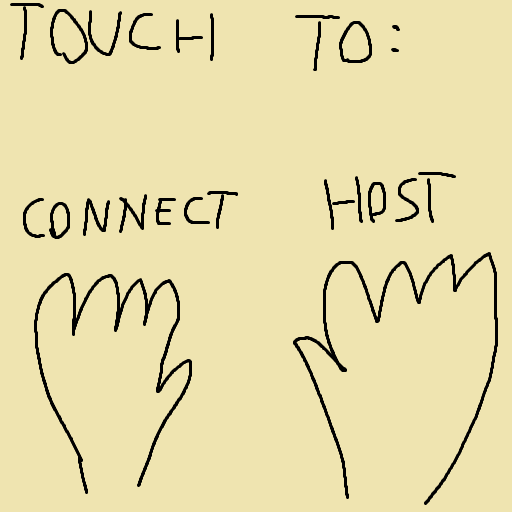 TOUCH TO:
CONNECT HOST